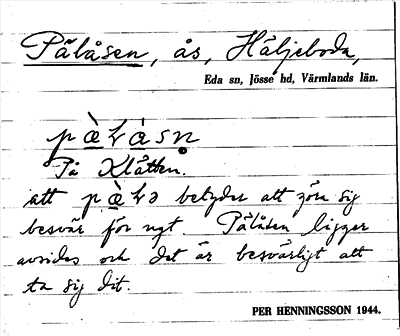 Pålåsen, ås, Häljeboda,
Eda sn, Jösse hd, Värmlands län.
På Klätten.
att betyder att göra sig
besvär för ngt. Pålåsen ligger
avsides och det är besvärligt att
ta sig dit.
PER HENNINGSSON 1944.